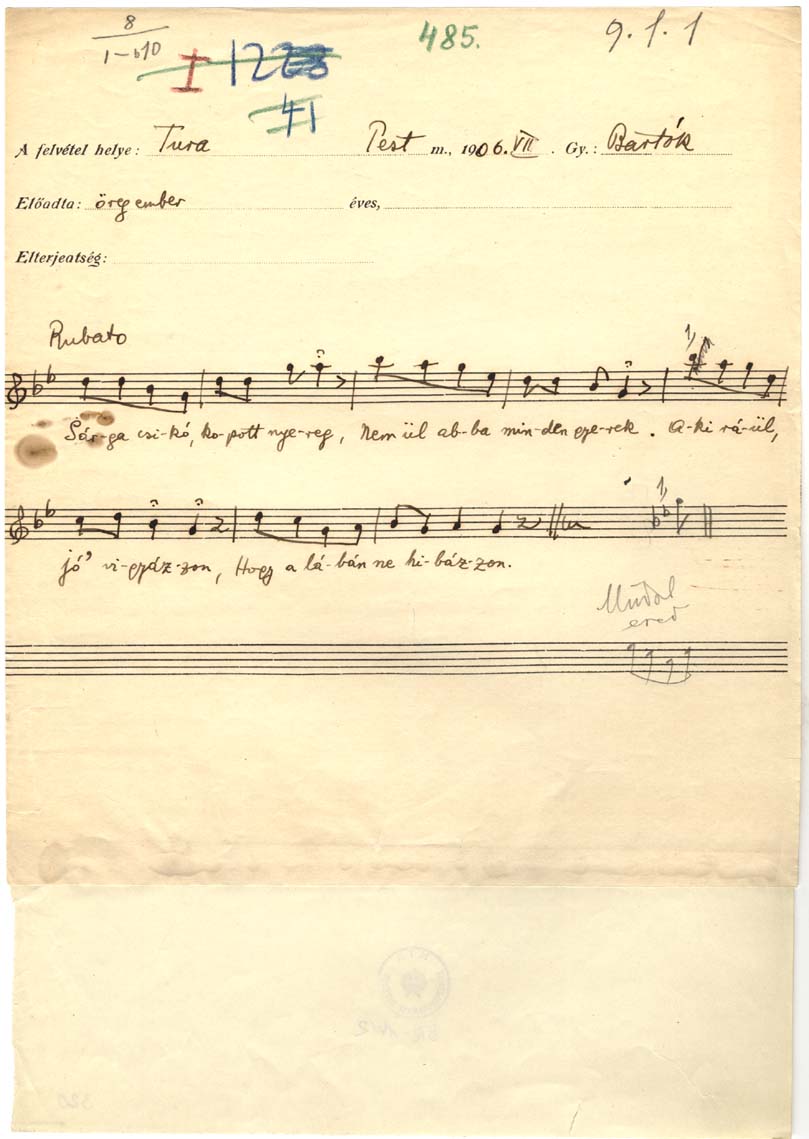 8 485. 9.1.1
1-b10 I
41
A felvétel helye: Tura Pest m., 1906. VII. Gy.: Bartók
Előadta: öreg ember éves,
Elterjeatség:
Rubato
1,
Sár-ga csi-kó, ko-pott nye-reg, Nem ül ab-ba min-den gye-rek. A-ki rá-ül,
1,
jó' vi-gyáz-zon, Hogy a lá-bán ne hi-báz-zon.
ered